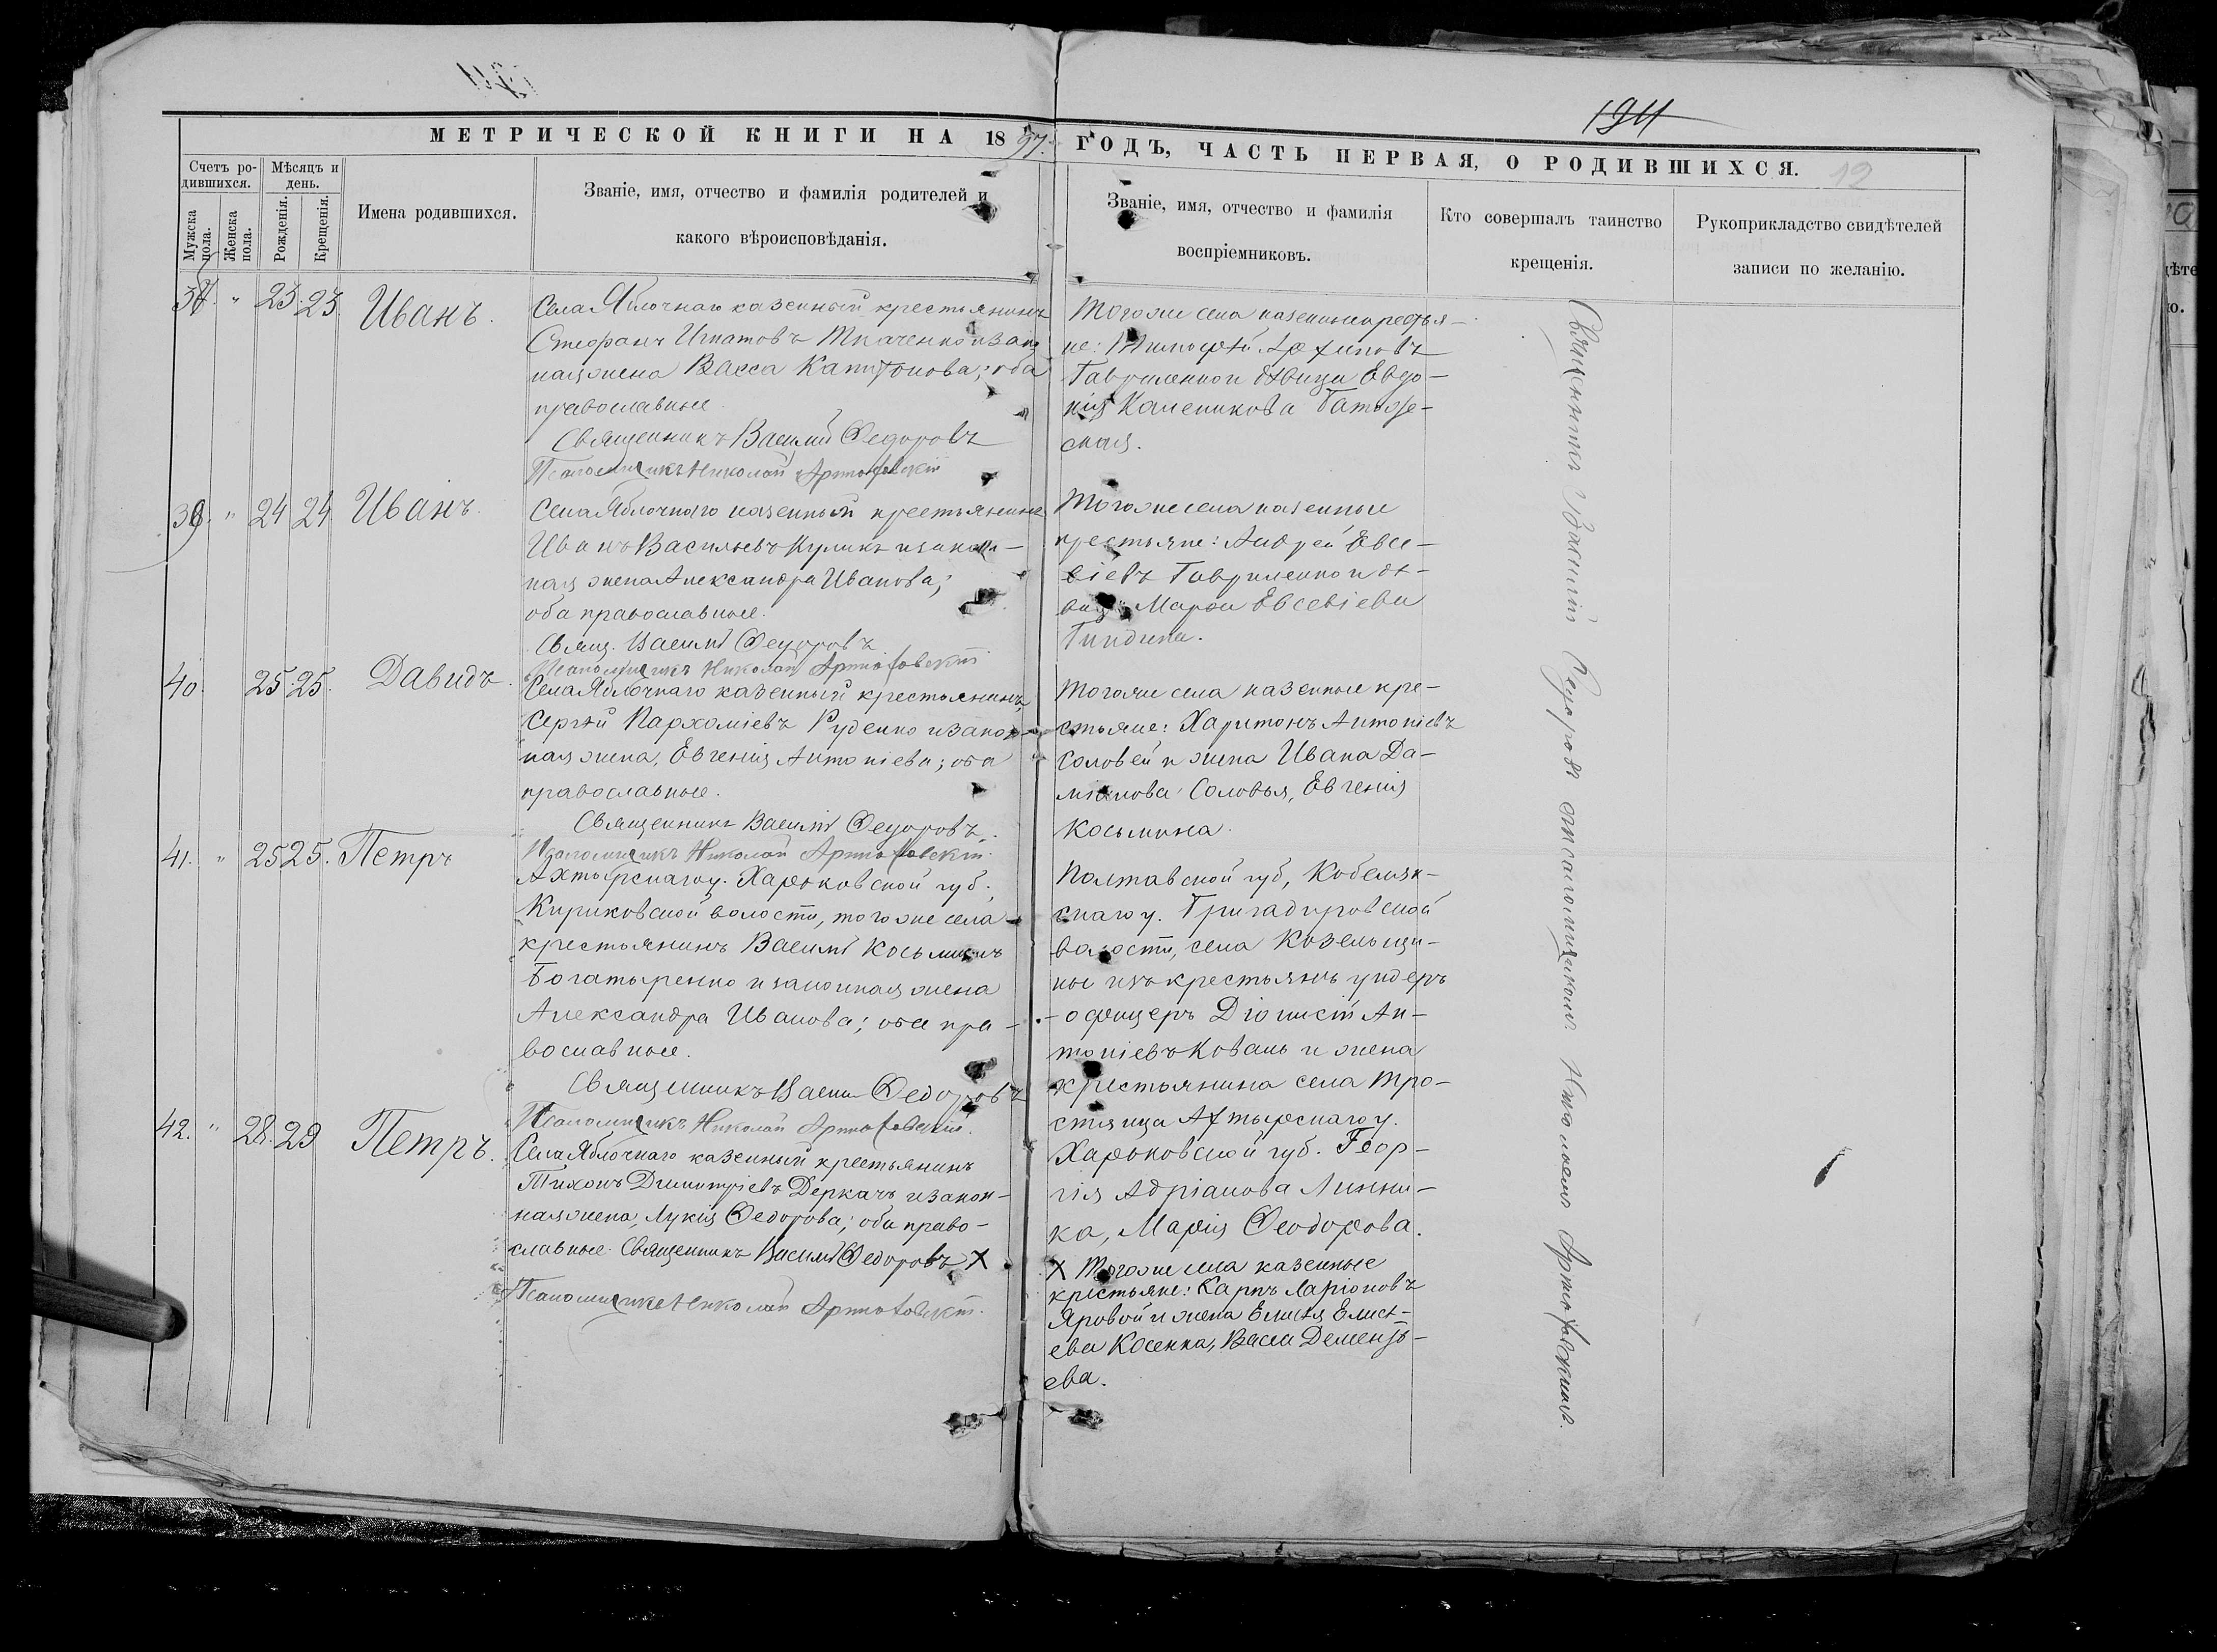 1911
МЕТРИЧЕСКОЙ КНИГИ НА 1897. ГОДЪ, ЧАСТЬ ПЕРВАЯ, О РОДИВШИХСЯ.
12
Счетъ ро-
дившихся.
Мужска
пола.
Женска
пола.
Мѣсяцъ и
день.
Рожденія.
Крещенія.
Имена родившихся.
Званіе, имя, отчество и фамилія родителей и
какого вѣроисповѣданія.
Званіе, имя, отчество и фамилія
воспріемниковъ.
Кто совершалъ таинство
крещенія.
Рукоприкладство свидѣтелей
записи по желанію.
" 23. 23 Иванъ.
Села Яблочнаго казенный крестьянинъ
Стефанъ Игнатовъ Ткаченко и закон
ная жена Васса Капитонова; оба
православные.
Священникъ Василій Федоровъ
Псаломщикъ Николай
Того же села казенные крестья-
не: Тимофей Архиповъ
Гавриленко и дѣвица Евдо-
кія
ская.
39. " 24 24 Иванъ.
Села Яблочнаго казенный крестьянинъ
Иванъ Васильевъ Куликъ и закон-
ная жена Александра Иванова;
оба православные.
Свящ. Василій Федоровъ
Псаломщикъ Николай
Того же села казенные
крестьяне: Андрей Евсе-
віевъ Гавриленко и дѣ-
вица Марфа Евсевіева
40. 25. 25. Давидъ.
Села Яблочнаго казенный крестьянинъ
Сергѣй Пархоміевъ Руденко и закон-
ная жена, Евгенія Антоніева; оба
православные.
Священникъ Василій Федоровъ.
Псаломщикъ Николай
Того же села казенные кре-
стьяне: Харитонъ Антоніевъ
Соловей и жена Ивана Да-
міанова Соловья, Евгенія
Косьмина.
41. " 25 25. Петръ
Ахтырскаго у. Харьковской губ.,
Кириковской волости, того же села
крестьянинъ Василій Косьминъ
Богатыренко и законная жена
Александра Иванова; оба пра-
вославные.
Священникъ Васил Федоровъ
Псаломщикъ Николай
Полтавской губ, Кобеляк-
скаго у. Григадировской
волости, села Козельщи-
ны изъ крестьянъ ундеръ
-офицеръ Діонисій Ан-
тоніевъ Коваль и жена
крестьянина села Тро-
стянца Ахтырскаго у.
Харьковской губ. Геор-
гія Адріанова Линни-
ка, Марія Феодорова.
42. " 28. 29 Петръ.
Села Яблочнаго казенный крестьянинъ
Тихонъ Димитріевъ Деркачъ и закон-
ная жена, Лукія Федорова; оба право-
славные. Священникъ Василій Федоровъ X
Псаломщикъ Николай
X Того же села казенные
крестьяне: Карпъ Ларіоновъ
Яровой и жена Елисея Елисѣ-
ева Косенка, Васса Дементь-
ева.
Священникъ Василій Федоровъ съ псаломщикомъ Николаемъ